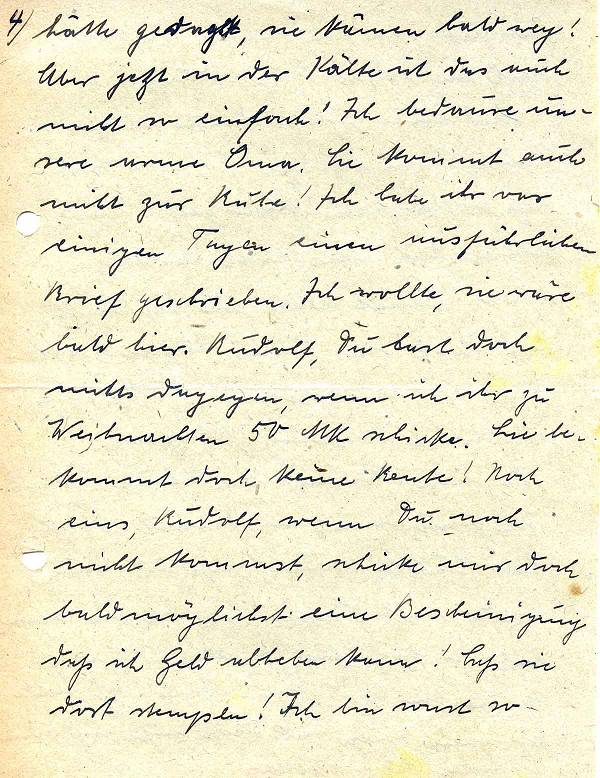 4)
hätte gedacht, sie kämen bald weg!
Aber jetzt in der Kälte ist das auch
nicht so einfach! Ich bedaure un-
sere arme Oma. Sie kommt auch
nicht zur Ruhe! Ich habe ihr vor
einigen Tagen einen ausführlichen
Brief geschrieben. Ich wollte, sie wäre
bald hier. Rudolf, Du hast doch
nichts dagegen, wenn ich ihr zu
Weihnachten 50 MK schicke. Sie be-
kommt doch keine Rente! Noch
eins, Rudolf, wenn Du noch
nicht kommst, schicke mir doch
baldmöglichst eine Bescheinigung
daß ich Geld abheben kann! Laß sie
dort stempeln! Ich bin sonst so